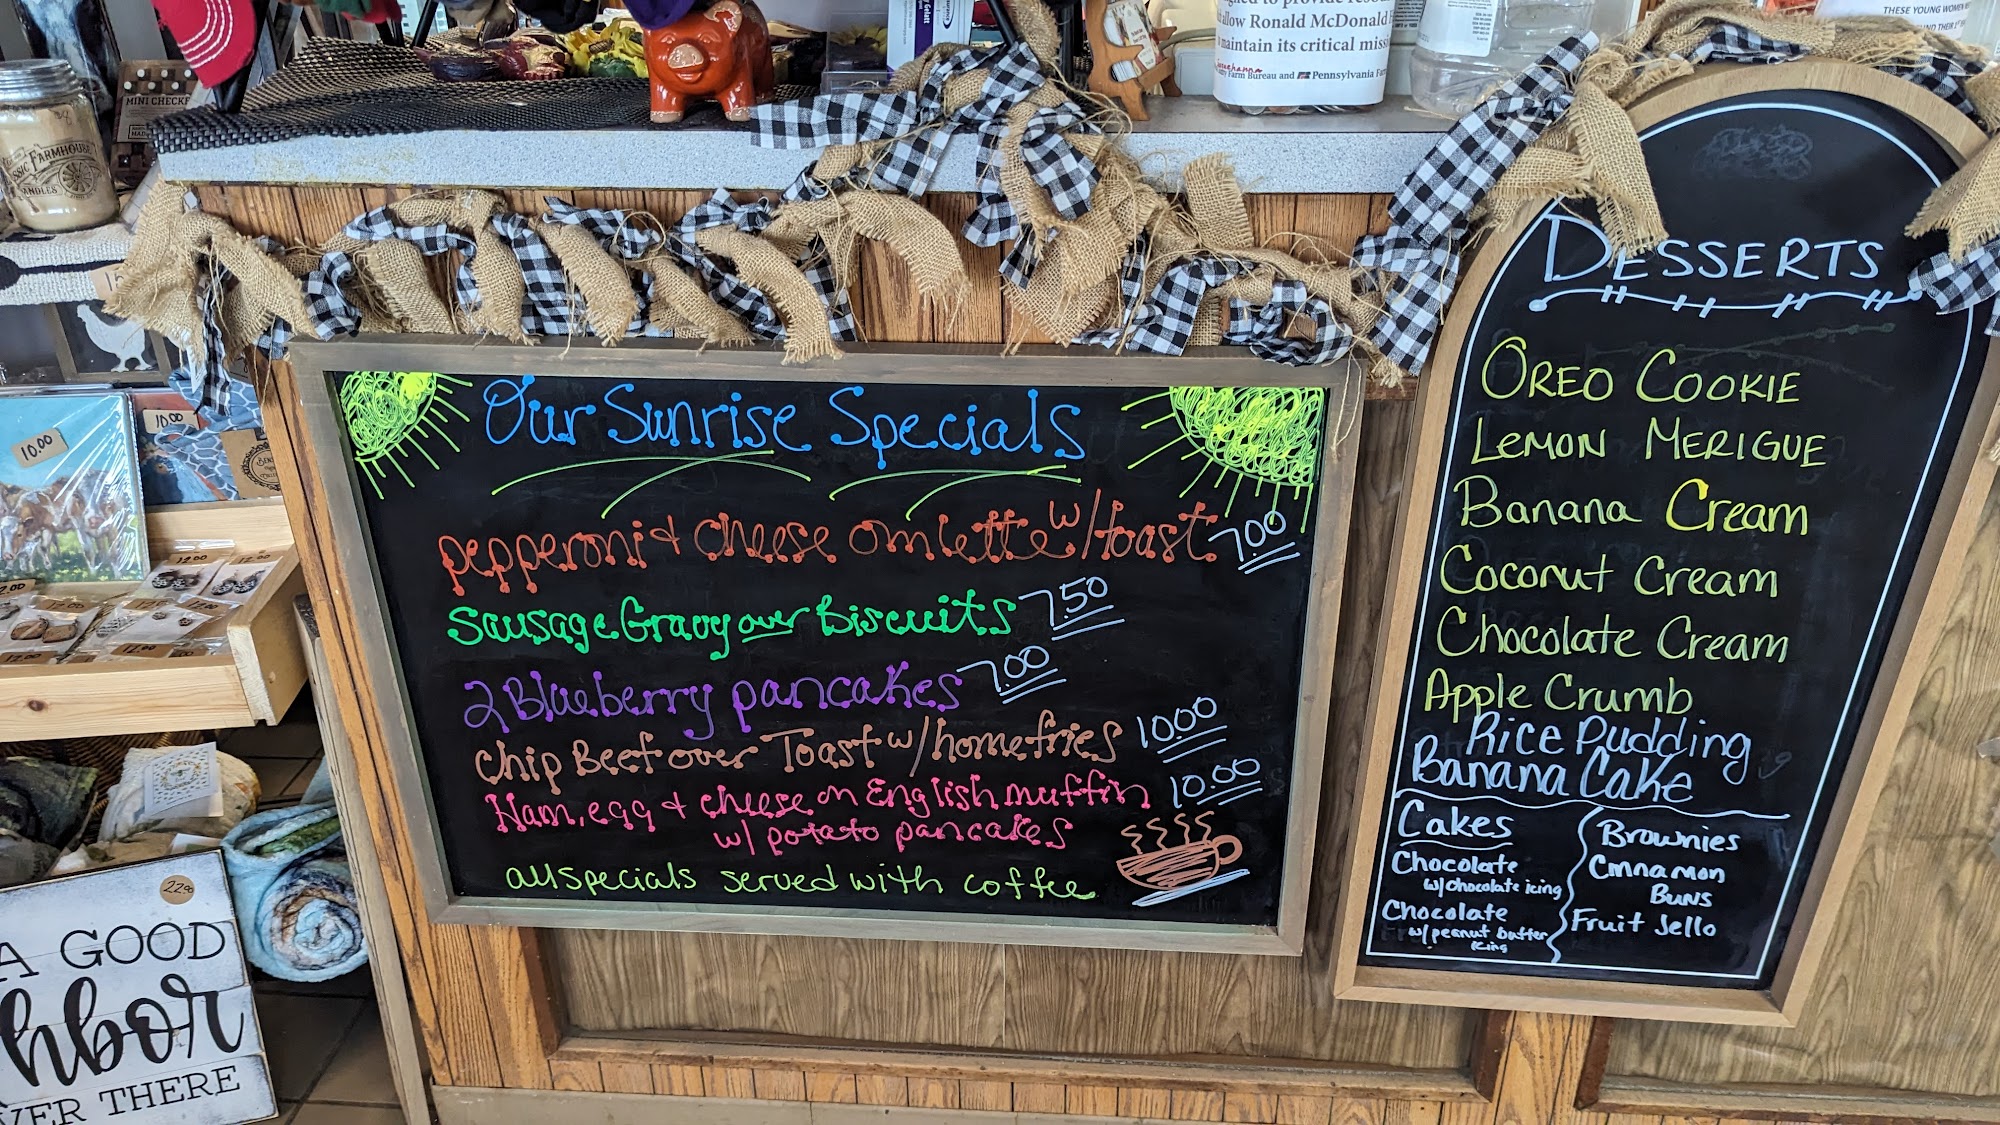 MINI CHECKE
FARMHOUSE
signed to provide resou
allow Ronald McDonald H
maintain its critical missi
Farm Bureau and Pennsylvania Far
THESE YOUNG WOMEN
Our Sunrise Specials
pepperoni + cheese omlette w/toast 7.00
Sausage Gravy over Biscuits 7.50
2 Blueberry pancakes 7.00
Chip Beef over Toast w/homefries 1000
Ham, egg + cheese on English muffin 10.00
w/ potato pancakes
all specials served with coffee
DESSERTS
OREO COOKIE
LEMON MERIGUE
Banana Cream
Coconut Cream
Chocolate Cream
Apple Crumb
Rice Pudding
Banana Cake
Cakes
Chocolate
w/chocolate icing
Chocolate
w/peanut butter
icing
Brownies
Cinnamon
Buns
Fruit Jello
10.00
10.00
12.00
12.00
12.00
12.00
22.00
A GOOD
hbor
VER THERE